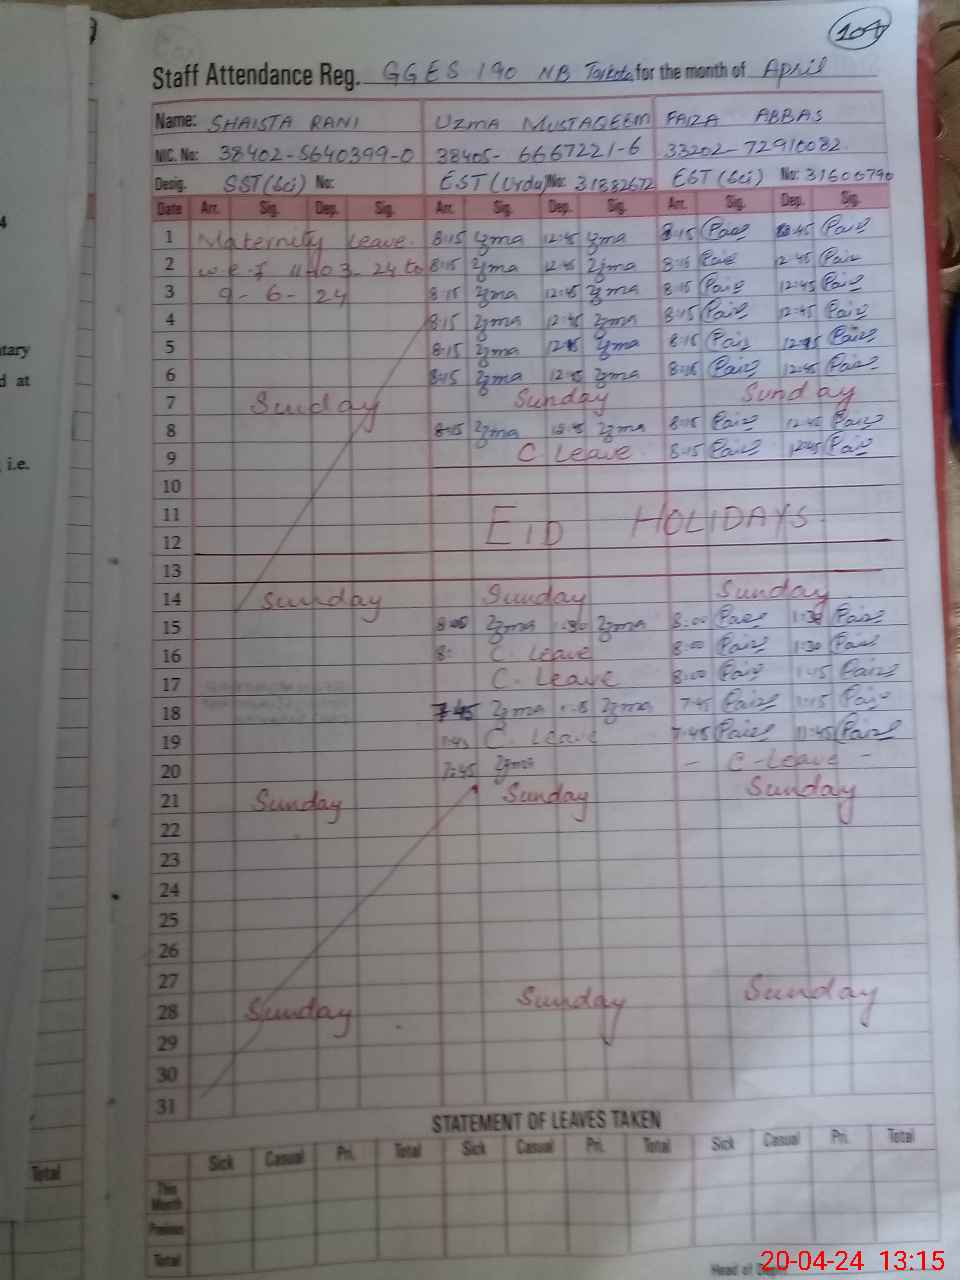 107
Staff Attendance Reg. GGES 190 NB for the month of April
Name: SHAISTA RANI UZMA MUSTAQEEM FAIZA ABBAS
NIC. No: 38402-5640399-0 38405-6667221-6 33202-72910082
Desig. SST(Sci) No: EST(Urdu) No: 31882672 EST(Sci) No: 31606790
Date Arr. Sig. Dep. Sig. Arr. Sig. Dep. Sig. Arr. Sig. Dep. Sig.
1 Maternity Leave. 8:15 Uzma 12:45 Uzma 8:15 Faiz 12:45 Faiz
2 w.e.f 11-03-24 to 8:15 Uzma 12:45 Uzma 8:15 Faiz 12:45 Faiz
3 9-6-24 8:15 Uzma 12:45 Uzma 8:15 Faiz 12:45 Faiz
4 8:15 Uzma 12:45 Uzma 8:15 Faiz 12:45 Faiz
5 8:15 Uzma 12:45 Uzma 8:15 Faiz 12:45 Faiz
6 8:15 Uzma 12:45 Uzma 8:15 Faiz 12:45 Faiz
7 Sunday Sunday Sunday
8 8:15 Uzma 12:45 Uzma 8:15 Faiz 12:45 Faiz
9 C Leave 8:15 Faiz 12:45 Faiz
10
11 EID HOLIDAYS
12
13
14 Sunday Sunday Sunday
15 8:00 Uzma 1:30 Uzma 8:00 Faiz 1:30 Faiz
16 8: C. Leave 8:00 Faiz 1:30 Faiz
17 C. Leave 8:00 Faiz 1:15 Faiz
18 7:45 Uzma 1:15 Uzma 7:45 Faiz 1:15 Faiz
19 C. Leave 7:45 Faiz 11:45 Faiz
20 7:45 Uzma - C-Leave -
21 Sunday Sunday Sunday
22
23
24
25
26
27
28 Sunday Sunday Sunday
29
30
31
STATEMENT OF LEAVES TAKEN
Sick Casual Pri. Total Sick Casual Pri. Total Sick Casual Pri. Total
This Month
Previous
Total
Head of
tary
d at
i.e.
Total
20-04-24 13:15